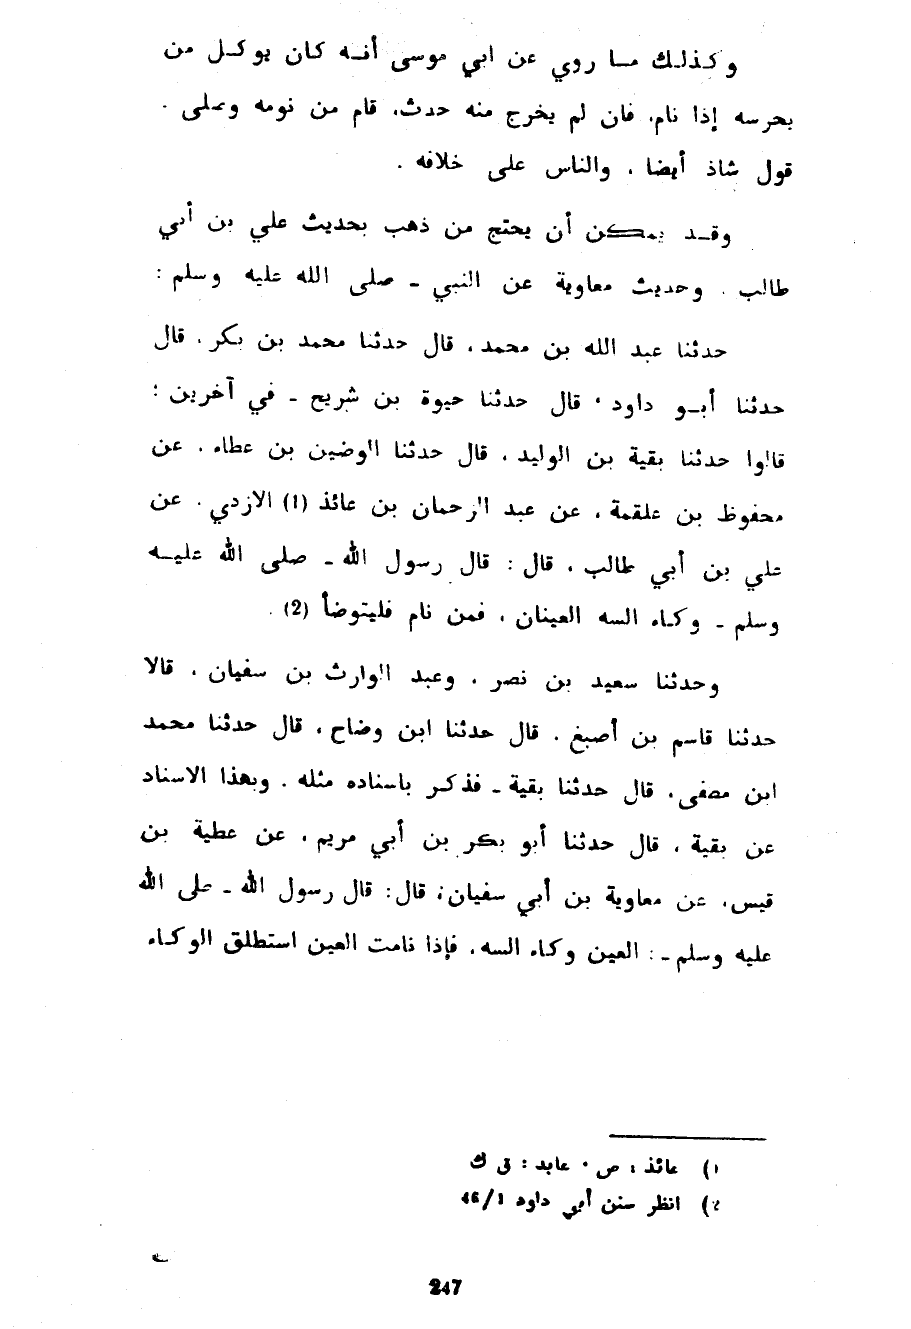 وكذلك مـا روي عن ابي موسى أنـه كان يوكـل من
يحرسه إذا نام، فان لم يخرج منه حدث، قام من نومه وصلى .
قول شاذ أيضا ، والناس على خلافه .
وقـد يمكن أن يحتج من ذهب بحديث علي بن أبي
طالب . وحديث معاوية عن النبي ـ صلى الله عليه وسلم :
حدثنا عبد الله بن محمد ، قال حدثنا محمد بن بكر ، قال
حدثنا أبـو داود ، قال حدثنا حيوة بن شريح ـ في آخرين :
قالوا حدثنا بقية بن الوليد ، قال حدثنا الوضين بن عطاء ، عن
محفوظ بن علقمة ، عن عبد الرحمان بن عائذ (1) الازدي ، عن
علي بن أبي طالب ، قال : قال رسول الله ـ صلى الله عليـه
وسلم ـ وكـاء السه العينان ، فمن نام فليتوضأ (2) .
وحدثنا سعيد بن نصر ، وعبد الوارث بن سفيان ، قالا
حدثنا قاسم بن أصبغ . قال حدثنا ابن وضاح ، قال حدثنا محمد
ابن مصفى ، قال حدثنا بقية ـ فذكـر باسناده مثله . وبهذا الاسناد
عن بقية ، قال حدثنا أبو بكر بن أبي مريم ، عن عطية بن
قيس ، عن معاوية بن أبي سفيان ، قال : قال رسول الله ـ صلى الله
عليه وسلم ـ : العين وكـاء السه ، فإذا نامت العين استطلق الوكـاء
1) عائذ : ص . عابد : ق ك
2) انظر سنن أبي داود 1/46
247